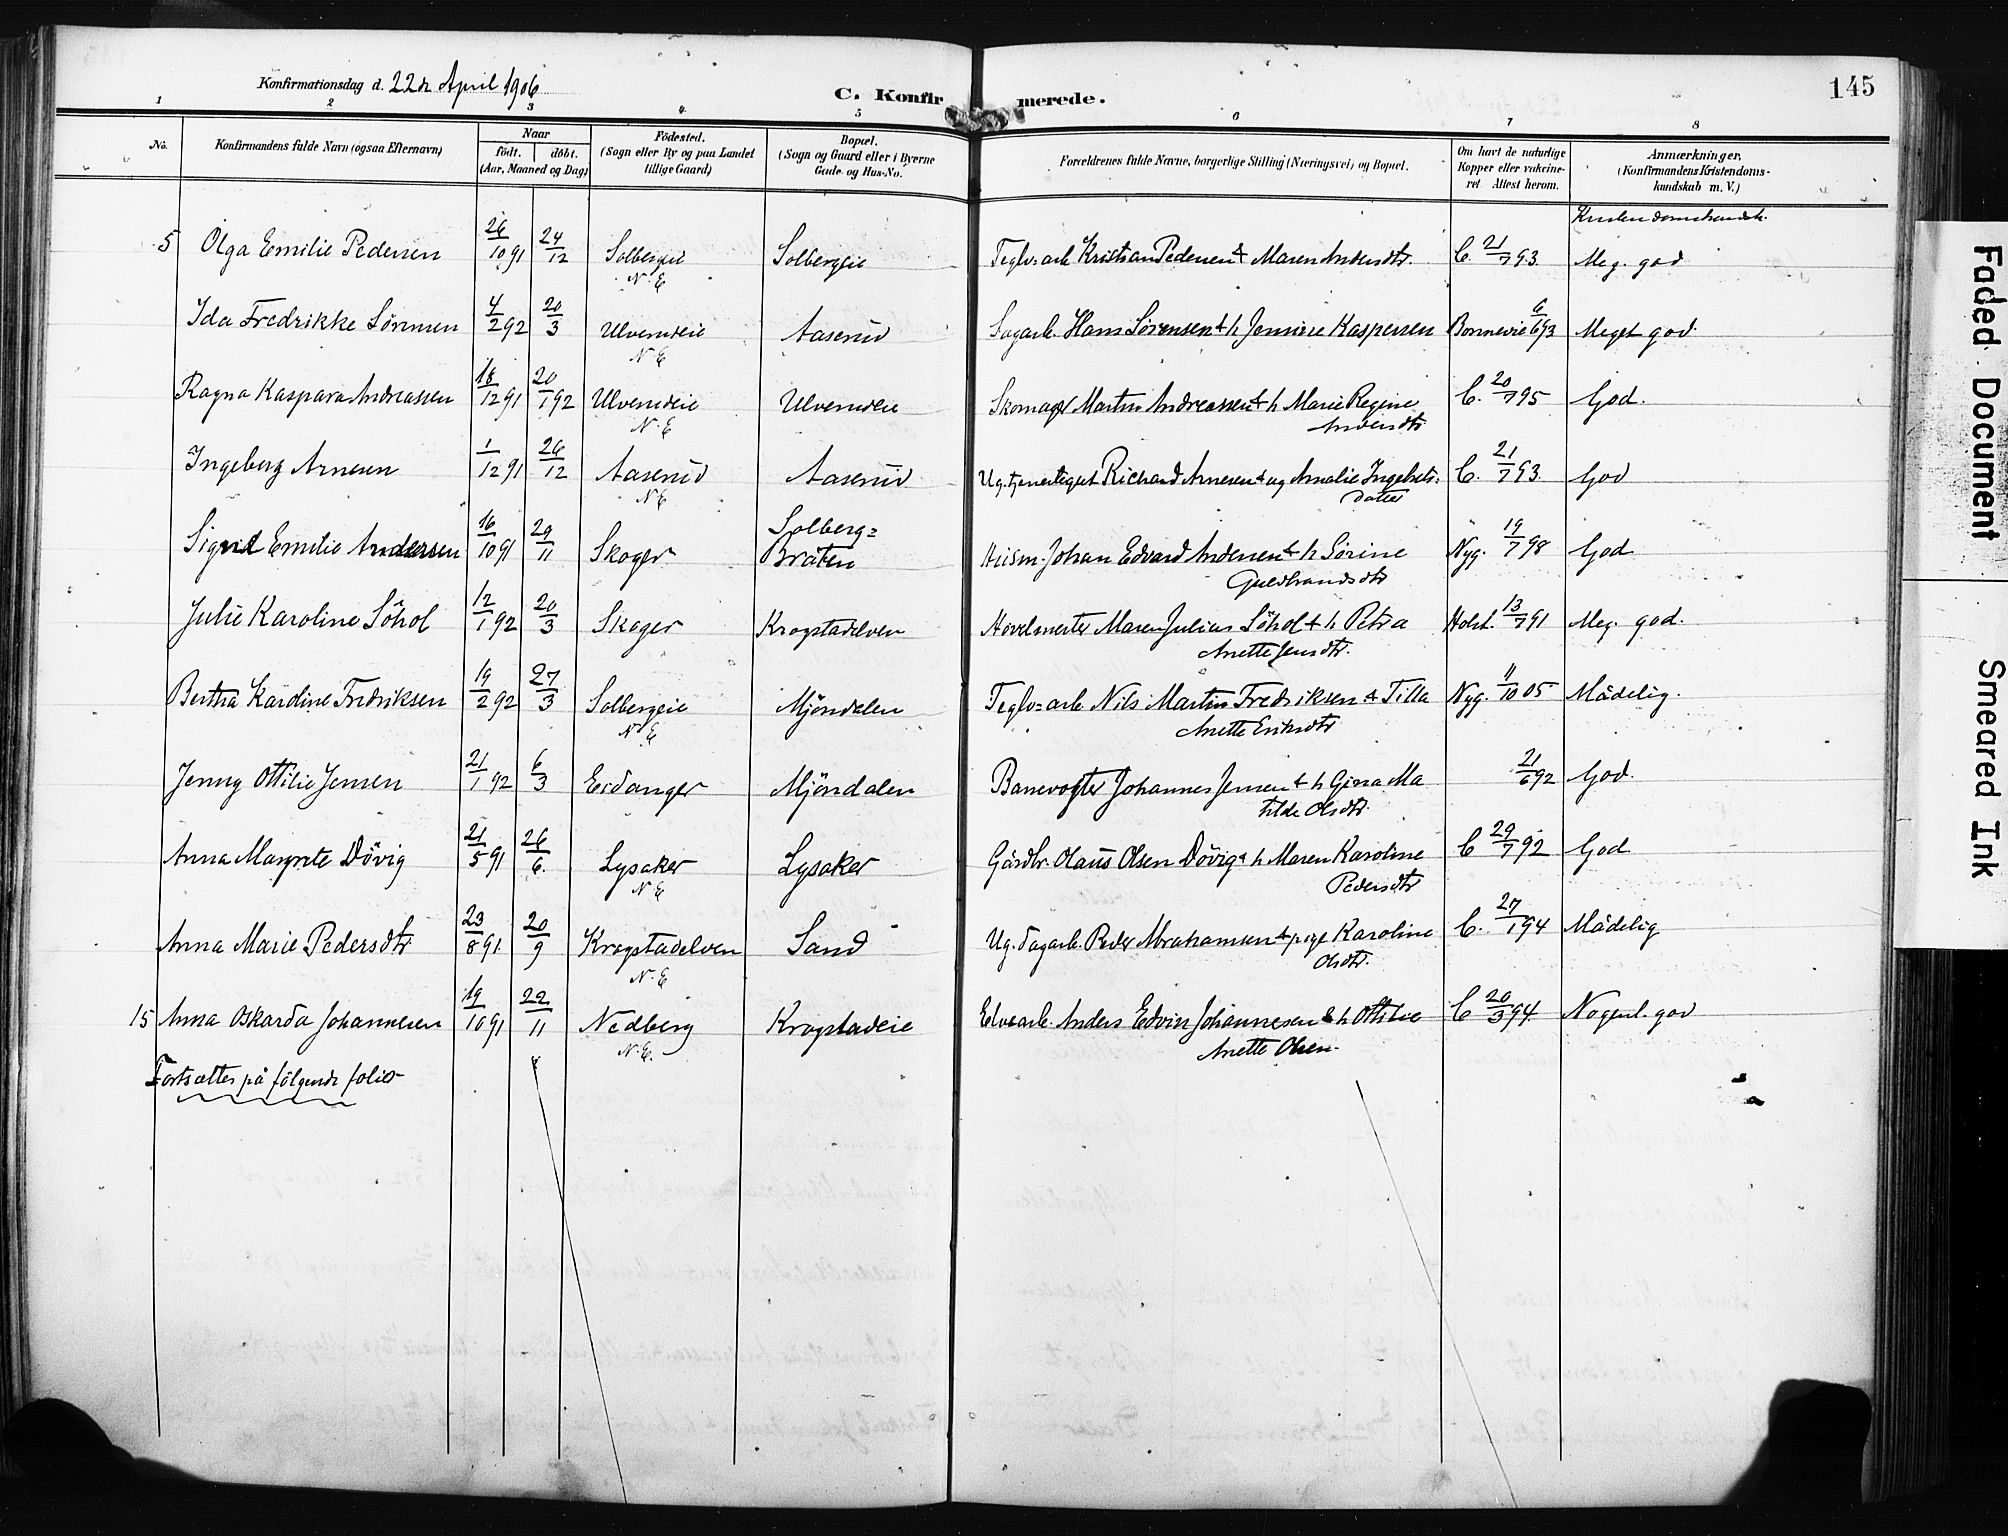 Konfirmationsdag d. 22de April 1906
C. Konfirmerede.
145
1 2 3 4 5 6 7 8
No.
Konfirmandens fulde Navn (ogsaa Efternavn)
Naar
födt. döbt.
(Aar, Maaned og Dag)
Födested.
(Sogn eller By og paa Landet
tillige Gaard)
Bopæl.
(Sogn og Gaard eller i Byerne
Gade- og Hus-No.
Forældrenes fulde Navne, borgerlige Stilling (Næringsvei) og Bopæl.
Om havt de naturlige
Kopper eller vakcine-
ret. Attest herom.
Anmærkninger.
(Konfirmandens Kristendoms-
kundskab m. V.)
Kristendomskundsk.
5 Olga Emilie Pedersen 26/10 91 24/12 Solbergeie Solbergeie Teglv=arb Kristian Pedersen & Maren Andersdtr. C. 21/7 93. Meg. god
N. E
Ida Fredrikke Sörensen 4/2 92 20/3 Ulverudeie Aaserud Sagarb. Hans Sörensen & h Jensine Kaspersen Bonnevie 6/6 93 Meget god.
N. E
Ragna Kaspara Andreassen 18/12 91 20/1 92 Ulverudeie Ulverudeie Skomager Martin Andreassen & h Marie Regine C. 20/7 95 God.
N. E Andersdtr
Ingeborg Arnesen 1/12 91 26/12 Aaserud Aaserud Richard Arnesen & og Amalie Ingebrets= C. 21/7 93. God
N. E datter
Sigrid Emilie Andersen 16/10 91 29/11 Skoger Solberg=
Bråten Huusm. Johan Edvard Andersen & h Sörine Nyg. 19/7 98 God
Guldbrandsdtr
Julie Karoline Söhol 12/1 92 20/3 Skoger Krogstadelven Hövelmester Maren Julius Söhol & h Petra Holst. 13/7 91 Meg. god.
Anette Jensdtr.
Bertha Karoline Fredriksen 19/2 92 27/3 Solbergeie Mjöndalen Teglv=arb Nils Martin Fredriksen & Tilla Nyg. 11/10 05 Mådelig.
N. E Anette Eriksdtr
Jenny Ottilie Jensen 21/1 92 6/3 Eidanger Mjöndalen Banevogter Johannes Jensen & h Gina Ma 21/6 92 God.
tilde Olsdtr.
Anna Margrete Dövig 21/5 91 26/6. Lysaker Lysaker Gårdbr. Olaus Olsen Dövig & h Maren Karoline C 29/7 92 God
N. E Pedersdtr
Anna Marie Pedersdtr 23/8 91 20/9 Krogstadelven Sand Ug. Dagarb. Peder Abrahamsen & pige Karoline C. 27/1 94 Mådelig
N. E Olsdtr.
15 Anna Oskarda Johannesen 19/10 91 22/11 Nedberg Krogstadeie Elvearb. Anders Edvin Johannesen & h Ottilie C 20/3 94. Nogenl. god
N. E. Anette Olsen.
Fortsættes på fölgende folio
Faded Document
Smeared Ink